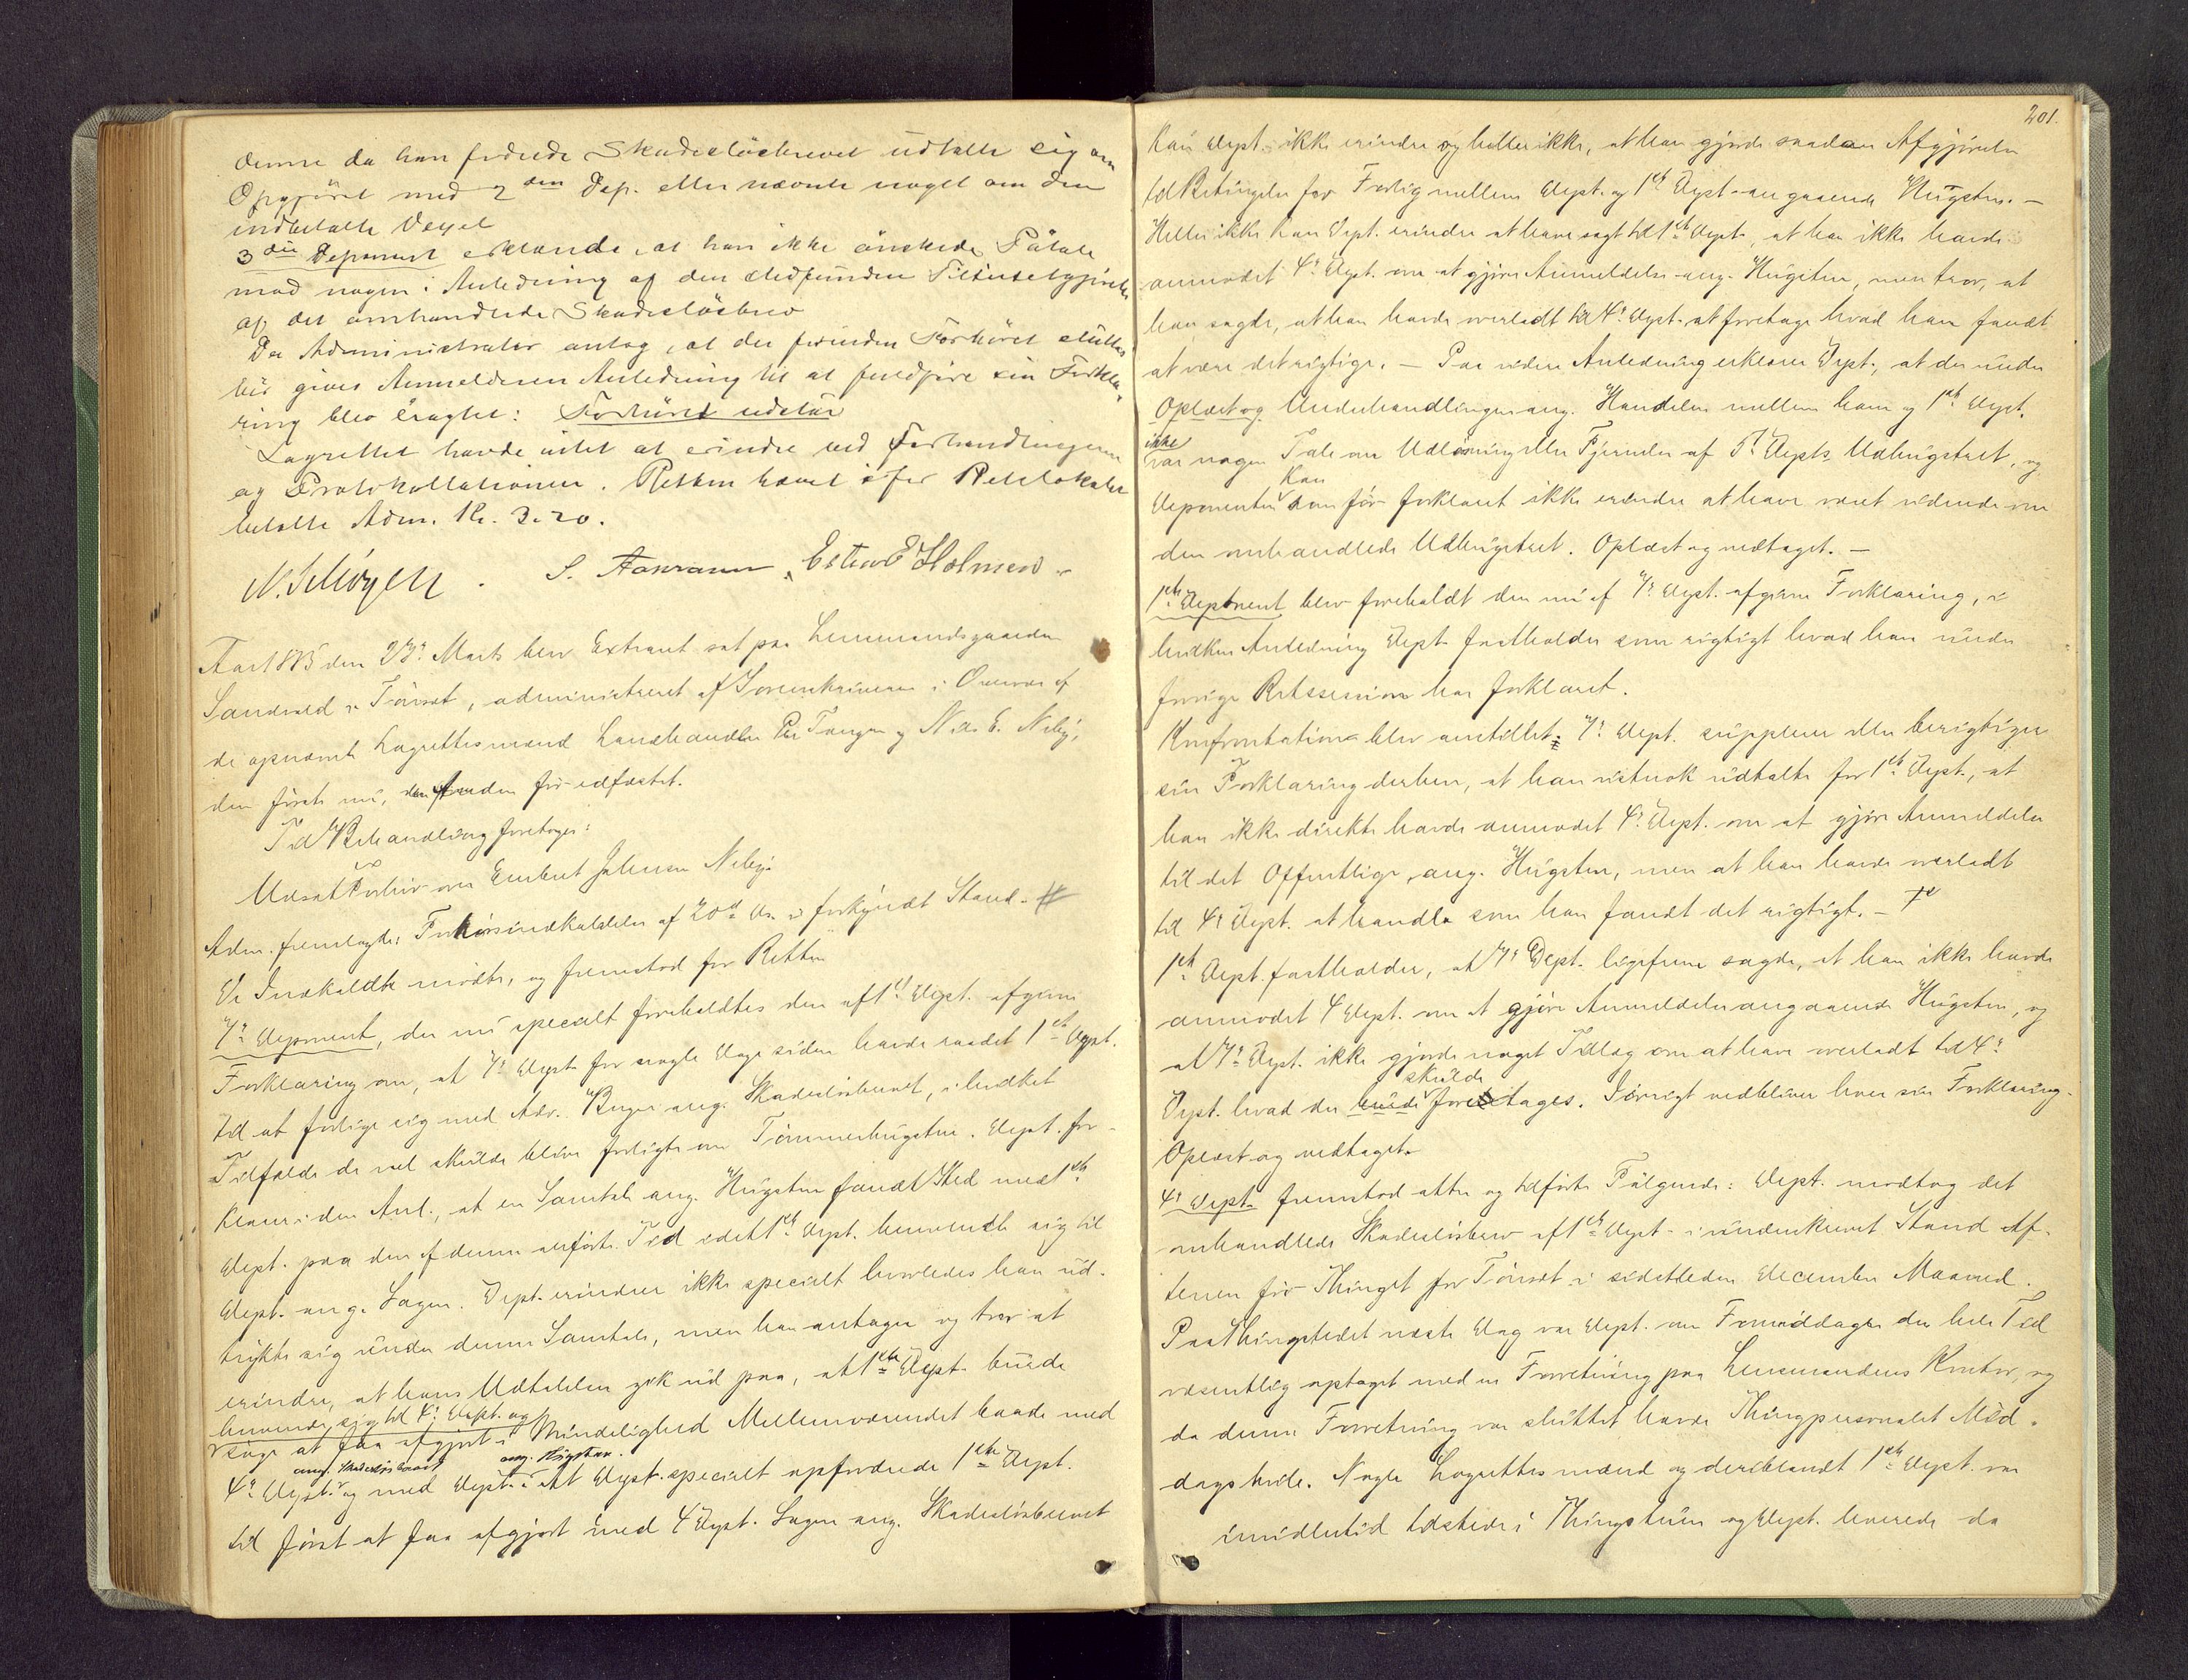 denne da han fordrede Skadesløsbrevet udtalte sig om
Opgjøret med 2den Dep. eller nævnte noget om den
indbetalte Vexel
3die Deponent erklærede, at han ikke ønskede Paatale
mod nogen i Anledning af den stedfundne Tilsidesættelse
af det omhandlede Skadesløsbrev
Da Administrator antog, at der forinden Forhøret sluttes
bør gives Anmelderen Anledning til at fuldføre sin Forkla-
ring blev eragtet: Forhøret udstaar
Lagrettet havde intet at erindre ved Forhandlingerne
og Protokollationen. Retten hævet. for Retslokalet
betalte Adm. Kr. 3.20.
S. Aasraann, Esten E Holmen
Aar 1885 den 27de Marts blev Extraret sat paa Lensmandsgaarden
Sandvold i Tönset, administreret af Sorenskriveren i Overvær af
de opnævnte Lagrettesmænd Landhandler Per Tangen og Nils E. Neby,
den første nu, den Anden før edfæstet.
Til Behandling foretoges:
Udsat Forhør over Embret Johnsen Neby
Adm. fremlagde: Forhørsindkaldelse af 20de ds. i forkyndt Stand. #
De Indkaldte mødte, og fremstod for Retten
7de Deponent, der nu specielt foreholdtes den af 1ste Dept. afgivne
Forklaring om, at 7de Dept. for nogle Dage siden havde raadet 1ste Dept.
til at forlige sig med Adv. Bugge ang. Skadesløsbrevet, i hvilket
Tilfælde de vel skulde blive forligte om Tømmerhugsten. Dept. for-
klarer i den Anl., at en Samtale ang. Hugsten fandt Sted med 1ste
Dept. paa den af denne anførte Tid idet 1ste Dept. henvendte sig til
Dept. ang. Sagen. Dept. erindrer ikke specielt hvorledes han ud-
trykte sig under denne Samtale, men han antager og tror at
erindre, at hans Udtalelse gik ud paa, at 1ste Dept. burde
henvende sig til 4de Dept. og
søge at faa afgjort i Mindelighed Mellemværendet baade med
ang. Skadesløsbrevet ang. Hugsten.
4de Dept. og med Dept. At Dept. specielt opfordrede 1ste Dept.
til først at faa afgjort med 4 Dept. Sagen ang. Skadesløsbrevet
201.
kan Dept. ikke erindre og heller ikke, at han gjorde saadan Afgjørelse
til Betingelse for Forlig mellem Dept. og 1ste Dept. angaaende Hugsten. —
Heller ikke kan Dept. erindre at have sagt til 1ste Dept., at han ikke havde
anmodet 4de Dept. om at gjøre Anmeldelse ang. Hugsten, men tror, at
han sagde, at han havde overladt til 4de Dept. at foretage hvad han fandt
at være det rigtige. — Paa videre Anledning erklærer Dept., at der under
Oplæst og Underhandlingerne ang. Handelen mellem ham og 1ste Dept.
ikke
var nogen Tale om Udløsning eller Fjernelse af 7de Depts Udhugstret, og
kan
Deponenten som før forklaret ikke erindre at have været vidende om
den omhandlede Udhugstret. Oplæst og vedtaget. —
1ste Deponent blev foreholdt den nu af 7de Dept. afgivne Forklaring, i
hvilken Anledning Dept. fastholder som rigtigt hvad han under
forrige Retssession har forklaret.
Konfrontation blev anstillet: 7de Dept. supplerer eller berigtiger
sin Forklaring derhen, at han vistnok udtalte for 1ste Dept., at
han ikke direkte havde anmodet 4de Dept. om at gjøre Anmeldelse
til det Offentlige ang. Hugsten, men at han havde overladt
til 4de Dept. at handle som han fandt det rigtigt. —
1ste Dept. fastholder, at 7de Dept. ligefrem sagde, at han ikke havde
anmodet 4 Dept. om at gjøre Anmeldelse angaaende Hugsten, og
at 7de Dept. ikke gjorde noget Tillæg om at have overladt til 4de
skulde
Dept. hvad der burde foretages. Iøvrigt vedbliver hver sin Forklaring.
Oplæst og vedtaget.
4de Dept. fremstod atter og tilførte Følgende: Dept. modtog det
omhandlede Skadesløsbrev af 1ste Dept. i underskrevet Stand Af-
tenen før Thinget for Tönset i sidstleden December Maaned.
Paa Thingstedet næste Dag var Dept. om Formiddagen den hele Tid
væsentlig optaget med en Forretning paa Lensmandens Kontor, og
da denne Forretning var sluttet havde Thingpersonalet Mid-
dagshvile. Nogle Lagrettesmænd og deriblandt 1ste Dept. var
imidlertid tilstede i Thingstuen og Dept. leverede da